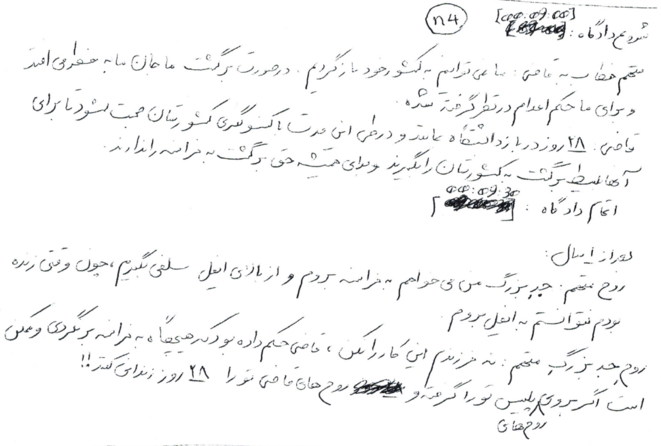 n4
شروع دادگاه: [00:09:00]
متهم خطاب به قاضی: ما نمی توانیم به کشور خود بازگردیم. در صورت برگشت ما جان ما به خطر می افتد
و برای ما حکم اعدام در نظر گرفته شده.
قاضی: ۲۸ روز در بازداشتگاه بمانند و در طی این مدت با کنسولگری کشورتان صحبت بشود تا برای
آنها بلیط برگشت به کشورتان را بگیرند و برای همیشه حق برگشت به فرانسه را ندارند.
اتمام دادگاه: [00:09:30]
بعد از ۱ سال:
روح متهم: جد بزرگ من می خواهم به فرانسه بروم و از بالای ایفل سلفی بگیرم، چون وقتی زنده
بودم نتوانستم به ایفل بروم.
روح جد بزرگ متهم: نه فرزندم این کار را نکن، قاضی حکم داده بود که هیچوقت به فرانسه برنگردی و ممکن
است اگر بروی پلیس تو را گرفته و روح های قاضی تو را ۲۸ روز زندانی کنند!!
روح های